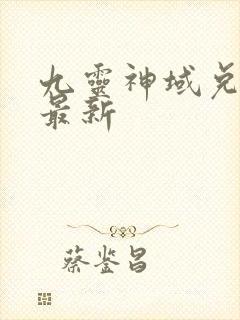 九靈神域兑
最新
蔡鉴昌